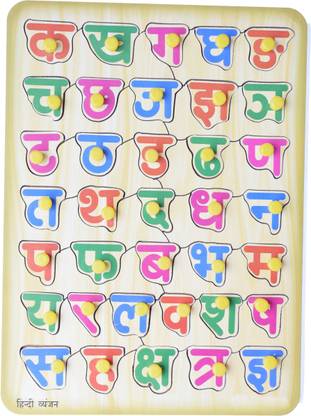 क ख ग घ ङ
च छ ज झ ञ
ट ठ ड ढ ण
त थ द ध न
प फ ब भ म
य र ल व श ष
स ह क्ष त्र ज्ञ
हिन्दी व्यंजन